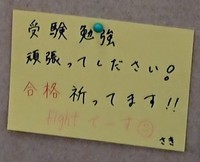 受験勉強
頑張ってしださい!
合格祈ってます!!
Fight でーす
さき